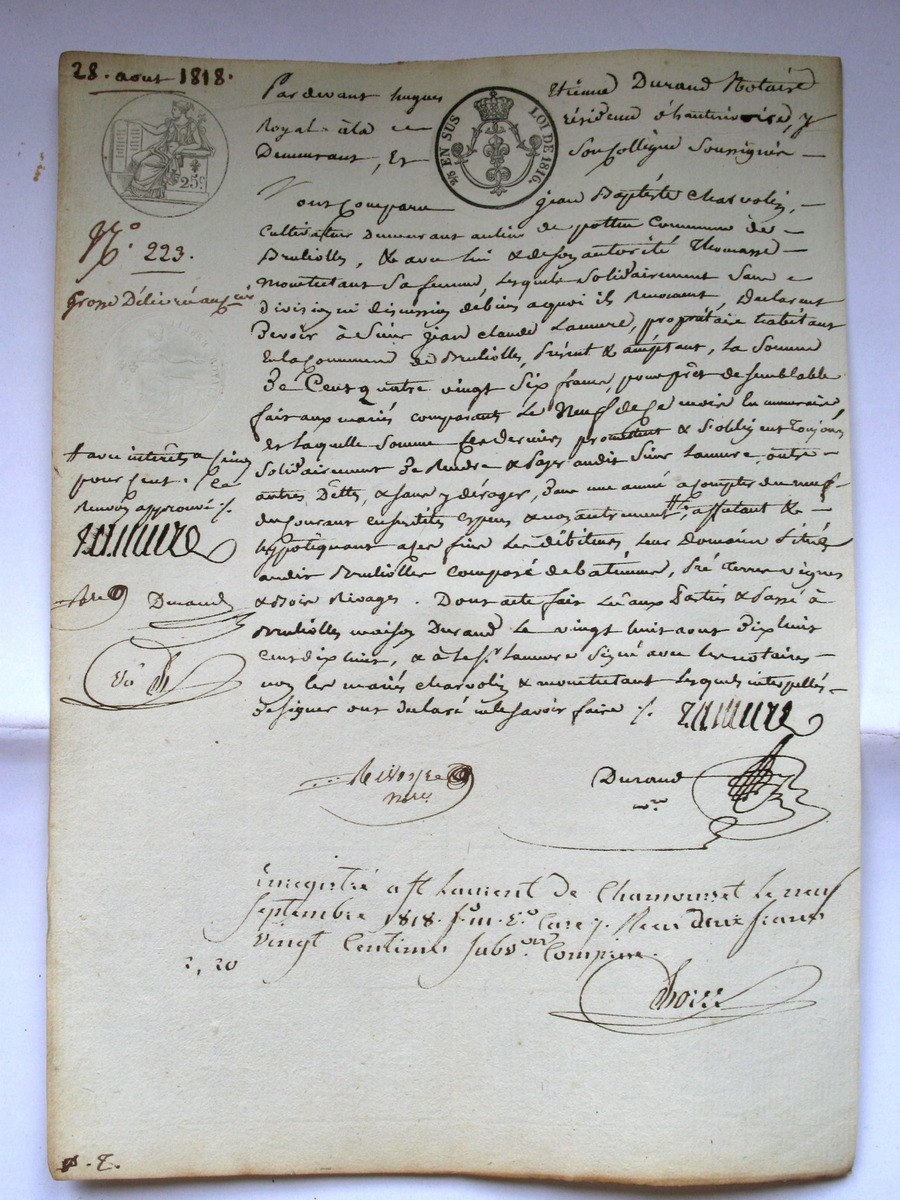 28. aout 1818.
Pardevant hugues Etienne Durand Notaire
Royal à la résidence d'hauterivoire, y
Demeurant, Et Son Collègue Soussignés
25c
2/8 EN SUS LOI DE 1816.
Ont Comparu jean Baptiste Charvolin,
Cultivateur Demeurant au lieu de pottu Commune de
Brullolles, & avec lui & de son autorité Thomasse
Montetant Sa femme, Lesquels Solidairement Sans
division ni discussion de biens a quoi ils Renoncent, Declarent
Devoir à Sieur jean Claude Lamure, propriétaire habitant
En la Commune de Brullolles, Présent & acceptant, La Somme
De Cent quatre vingt Six francs, pour prêt de semblable
fait aux mariés comparants Le Neuf de Ce mois En numeraire,
et Laquelle Somme Ces derniers promettent & S'obligent Toujours
Solidairement De Rendre & Payer audit Sieur Lamure, outre
autres Dettes, & Sans y déroger, Dans une année a Compter du neuf
du Courant en susdites espèces & non autrement #, affectant &
hypotéquant a ces fins Les débiteurs, leur Domaine Situé
audit Brullolles Composé de bâtiments, Pré Terres vignes
& Bois Rivages. Dont acte fait Lu aux Parties & Passé à
Brullolles maison Durand Le vingt huit aout Dix huit
Cent dix huit, & a Led. Sr Lamure Signé avec les notaires
non les mariés Charvolin & montetant Lesquels interpellés
De signer ont declaré ne le Savoir faire ./.
Lamure
N.o 223.
Grosse Délivrée au Cr
# avec intérêts a Cinq
pour Cent. La
Renvoi approuvé ./.
Lamure
Durand
Durand
nre
Enregistré a St Laurent de Chamousset Le neuf
Septembre 1818. Reçu deux francs
Vingt Centimes Subv.on Comprise.
2, 20